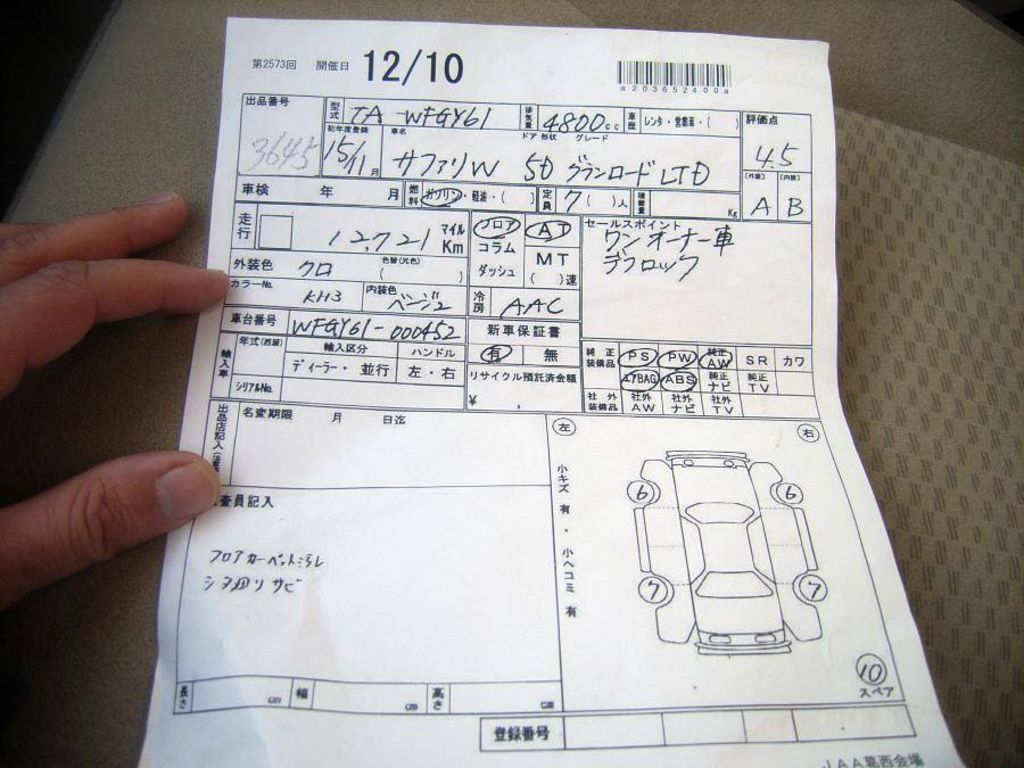 第2573回 開催日 12/10
a203652400a
出品番号 3645
型式 TA-WFGY61 排気量 4800cc 車歴 レンタ・営業車・( )
評価点 4.5
初年度登録 15/11月 車名 ドア 形状 グレード
サファリW 5D グランロードLTD
[外装] A [内装] B
車検 年 月 燃料 ガソリン・軽油・( ) 定員 7( )人 積載量 Kg
走行 12,721 マイル Km
フロア コラム ダッシュ
AT MT ( )速
セールスポイント
ワンオーナー車
デフロック
外装色 クロ 色替(元色) ( )
カラーNo. KH3 内装色 ベージュ
冷房 AAC
車台番号 WFGY61-000452
新車保証書 有 無
輸入車 年式(西暦) 輸入区分 ハンドル
ディーラー・並行 左・右
シリアルNo.
リサイクル預託済金額
¥ ,
純正装備品 PS PW 純正AW SR カワ
エアBAG ABS 純正ナビ 純正TV
社外装備品 社外AW 社外ナビ 社外TV
名変期限 月 日迄
査員記入
フロアカーペットヨゴレ
シタ回リサビ
左 右
小キズ 有・小ヘコミ 有
6 6
7 7
10
スペア
長さ cm 幅 cm 高さ cm
登録番号
JAA葛西会場